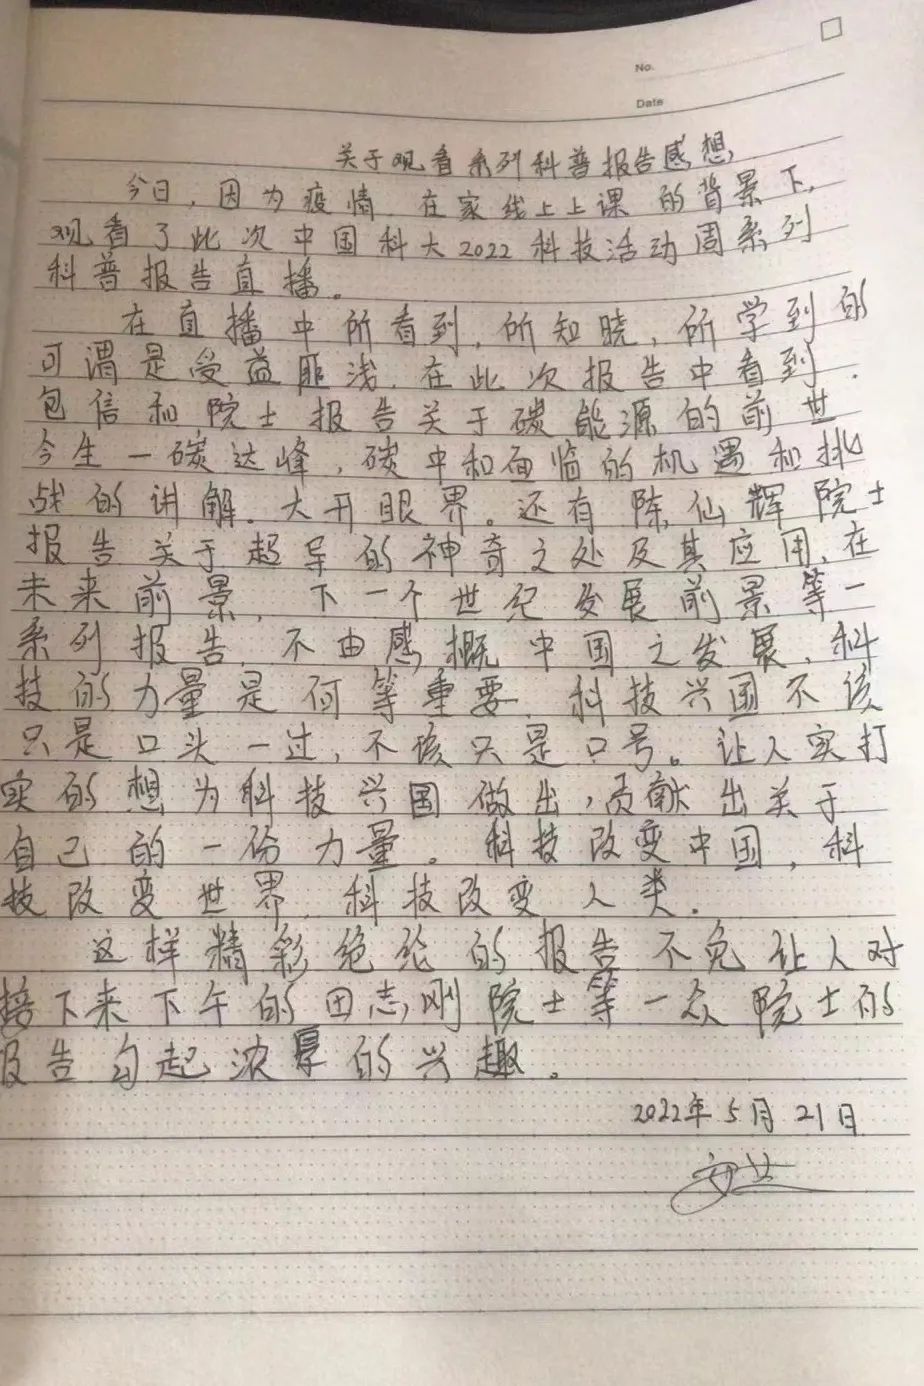 No.
Date
关于观看系列科普报告感想
今日，因为疫情，在家线上上课的背景下，
观看了此次中国科大2022科技活动周系列
科普报告直播。
在直播中所看到，所知晓，所学到的
可谓是受益匪浅，在此次报告中看到，
包信和院士报告关于碳能源的前世
今生一碳达峰，碳中和面临的机遇和挑
战的讲解。大开眼界。还有陈仙辉院士
报告关于超导的神奇之处及其应用，在
未来前景，下一个世纪发展前景等一
系列报告，不由感概中国之发展，科
技的力量是何等重要，科技兴国不该
只是口头一过，不该只是口号。让人实打
实的想为科技兴国做出，贡献出关于
自己的一份力量。科技改变中国，科
技改变世界，科技改变人类．
这样精彩绝伦的报告不免让人对
接下来下午的田志刚院士等一众院士的
报告勾起浓厚的兴趣。
2022年5月21日